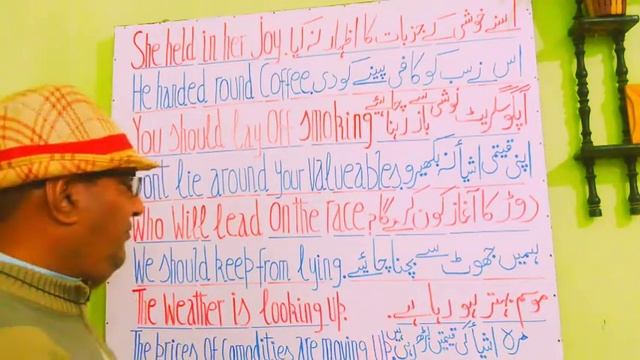 She held in her Joy. اسنے خوشی کے جزبات کا اظہار نہ کیا
He handed round Coffee. اس نے سب کو کافی پینے کو دی
You should lay off smoking آپکو سگریٹ نوشی سے باز رہنا
ont lie around your valueables. اپنی قیمتی اشیأ نہ بکھیرو
Who will lead on the race دوڑ کا آغاز کون کرے گا
We should keep from lying. ہمیں جھوٹ سے بچنا چاہئیے
The weather is looking up. موسم بہتر ہو رہا ہے.
The prices of comodities are moving up اشیأ کی قیمتیں بڑھ رہی ہیں